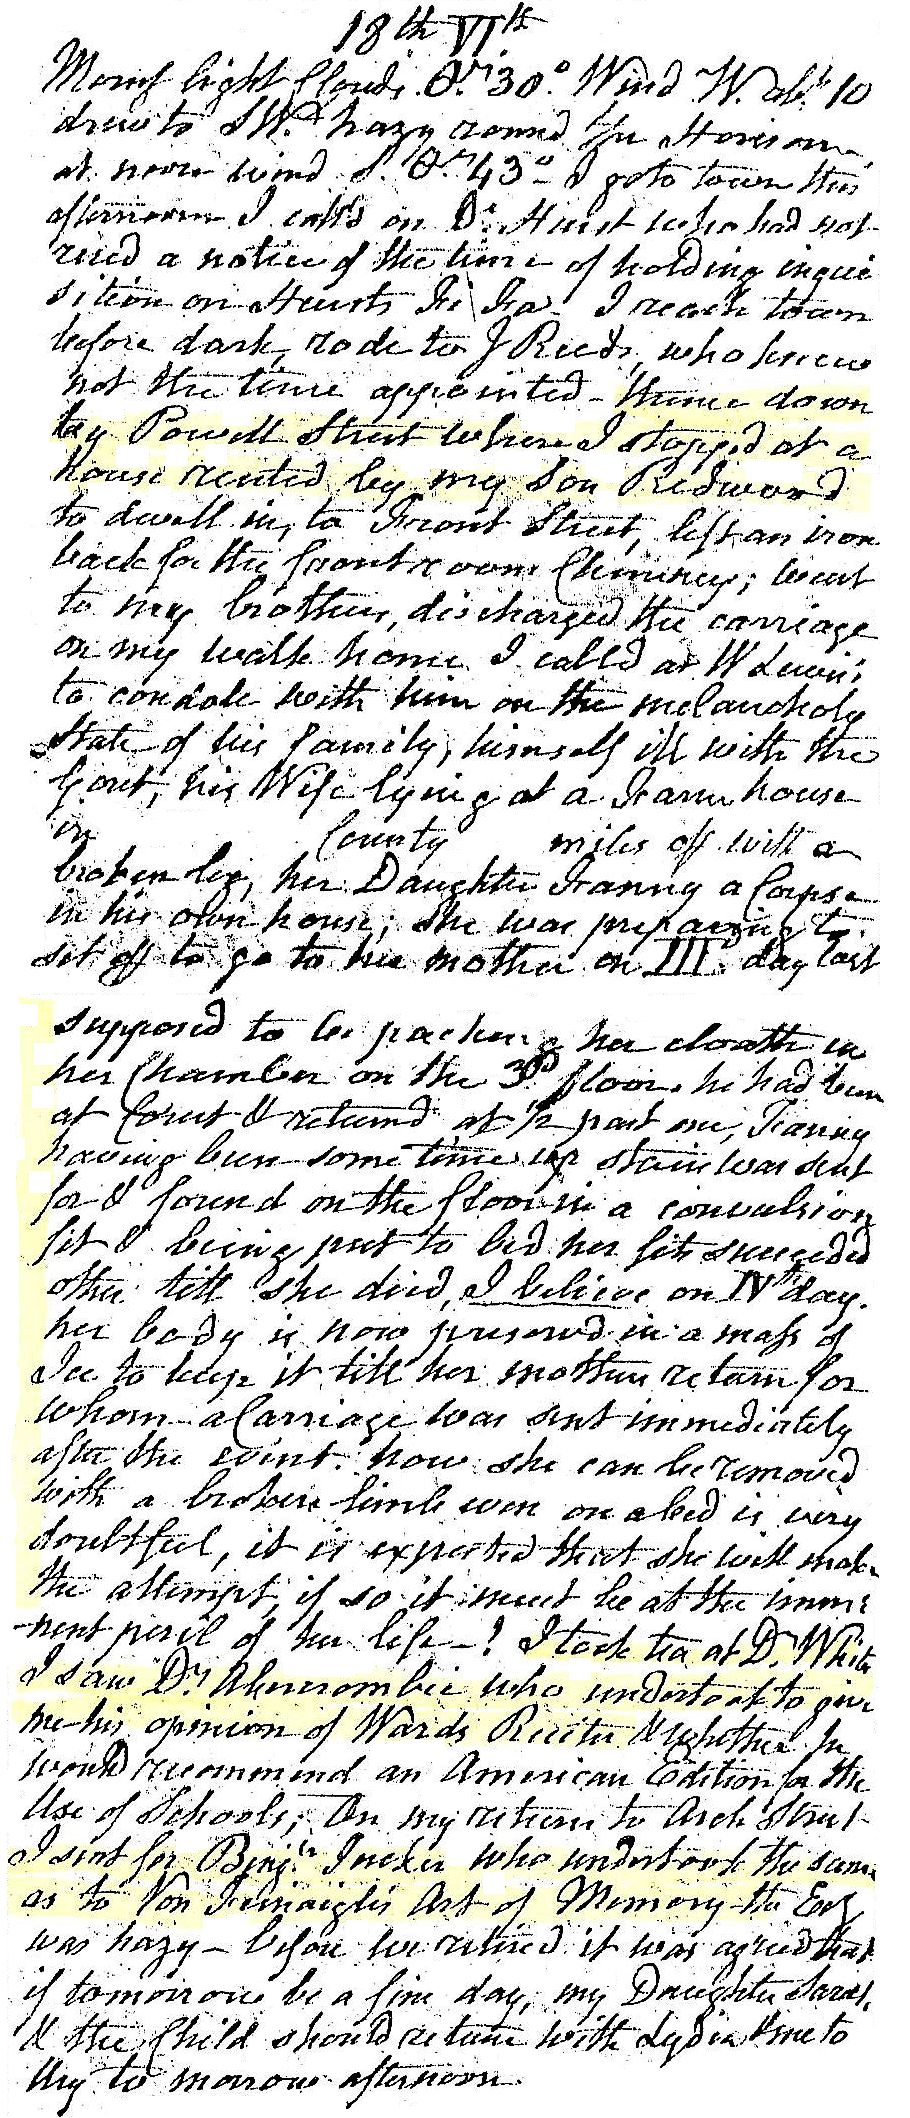 18th VIth
Morng light Clouds. Thr. 30° Wind W. abt 10
drew to SW.d hazy round the Horison
at noon wind S. Thr. 43° I go to town this
afternoon I call'd on Dr. Hurst who had not
rec'd a notice of the time of holding inqui
sition on Hursts Fi Fa. I reach town
before dark, rode to J Reeds, who knew
not the time appointed - thence down
to Powell Street where I stopped at a
house rented by my Son Redwood
to dwell in, to Front Street, left an iron
back for the front room Chimney; went
to my brothers, discharged the carriage
on my walk home I called at W Lewis's
to condole with him on the melancholy
State of his family, himself ill with the
Gout, his Wife lying at a Farm house
in County miles off with a
broken leg, her Daughter Franny a Corpse
in his own house; she was preparing to
set off to go to her mother on IIId. day last
supposed to be packing her cloath in
her Chamber on the 3d floor. he had been
at Court & returned at 1/2 past one, Franny
having been some time up stairs was sent
for & found on the floor in a convulsion
fit & being put to bed her fits succeeded
other till she died, I believe on IVth day.
her body is now preserved in a mass of
Ice to keep it till her mother return for
whom a Carriage was sent immediately
after the event. how she can be removed
with a broken limb even on a bed is very
doubtful, it is expected that she will make
the attempt, if so it must be at the immi
-nent peril of her life -! I took tea at Dr. White
I saw Dr. Abercrombie who undertook to give
me his opinion of Wards Reciter & whether he
would recommend an American Edition for the
Use of Schools; On my return to Arch Street
I sent for Benjn. Tucker who undertook the same
as to Von Feinaigles Art of Memory - the Eveg
was hazy - before we retired it was agreed that
if tomorrow be a fine day, my Daughter Sarah,
& the Child should return with Lydia & me to
Ury to morrow afternoon.